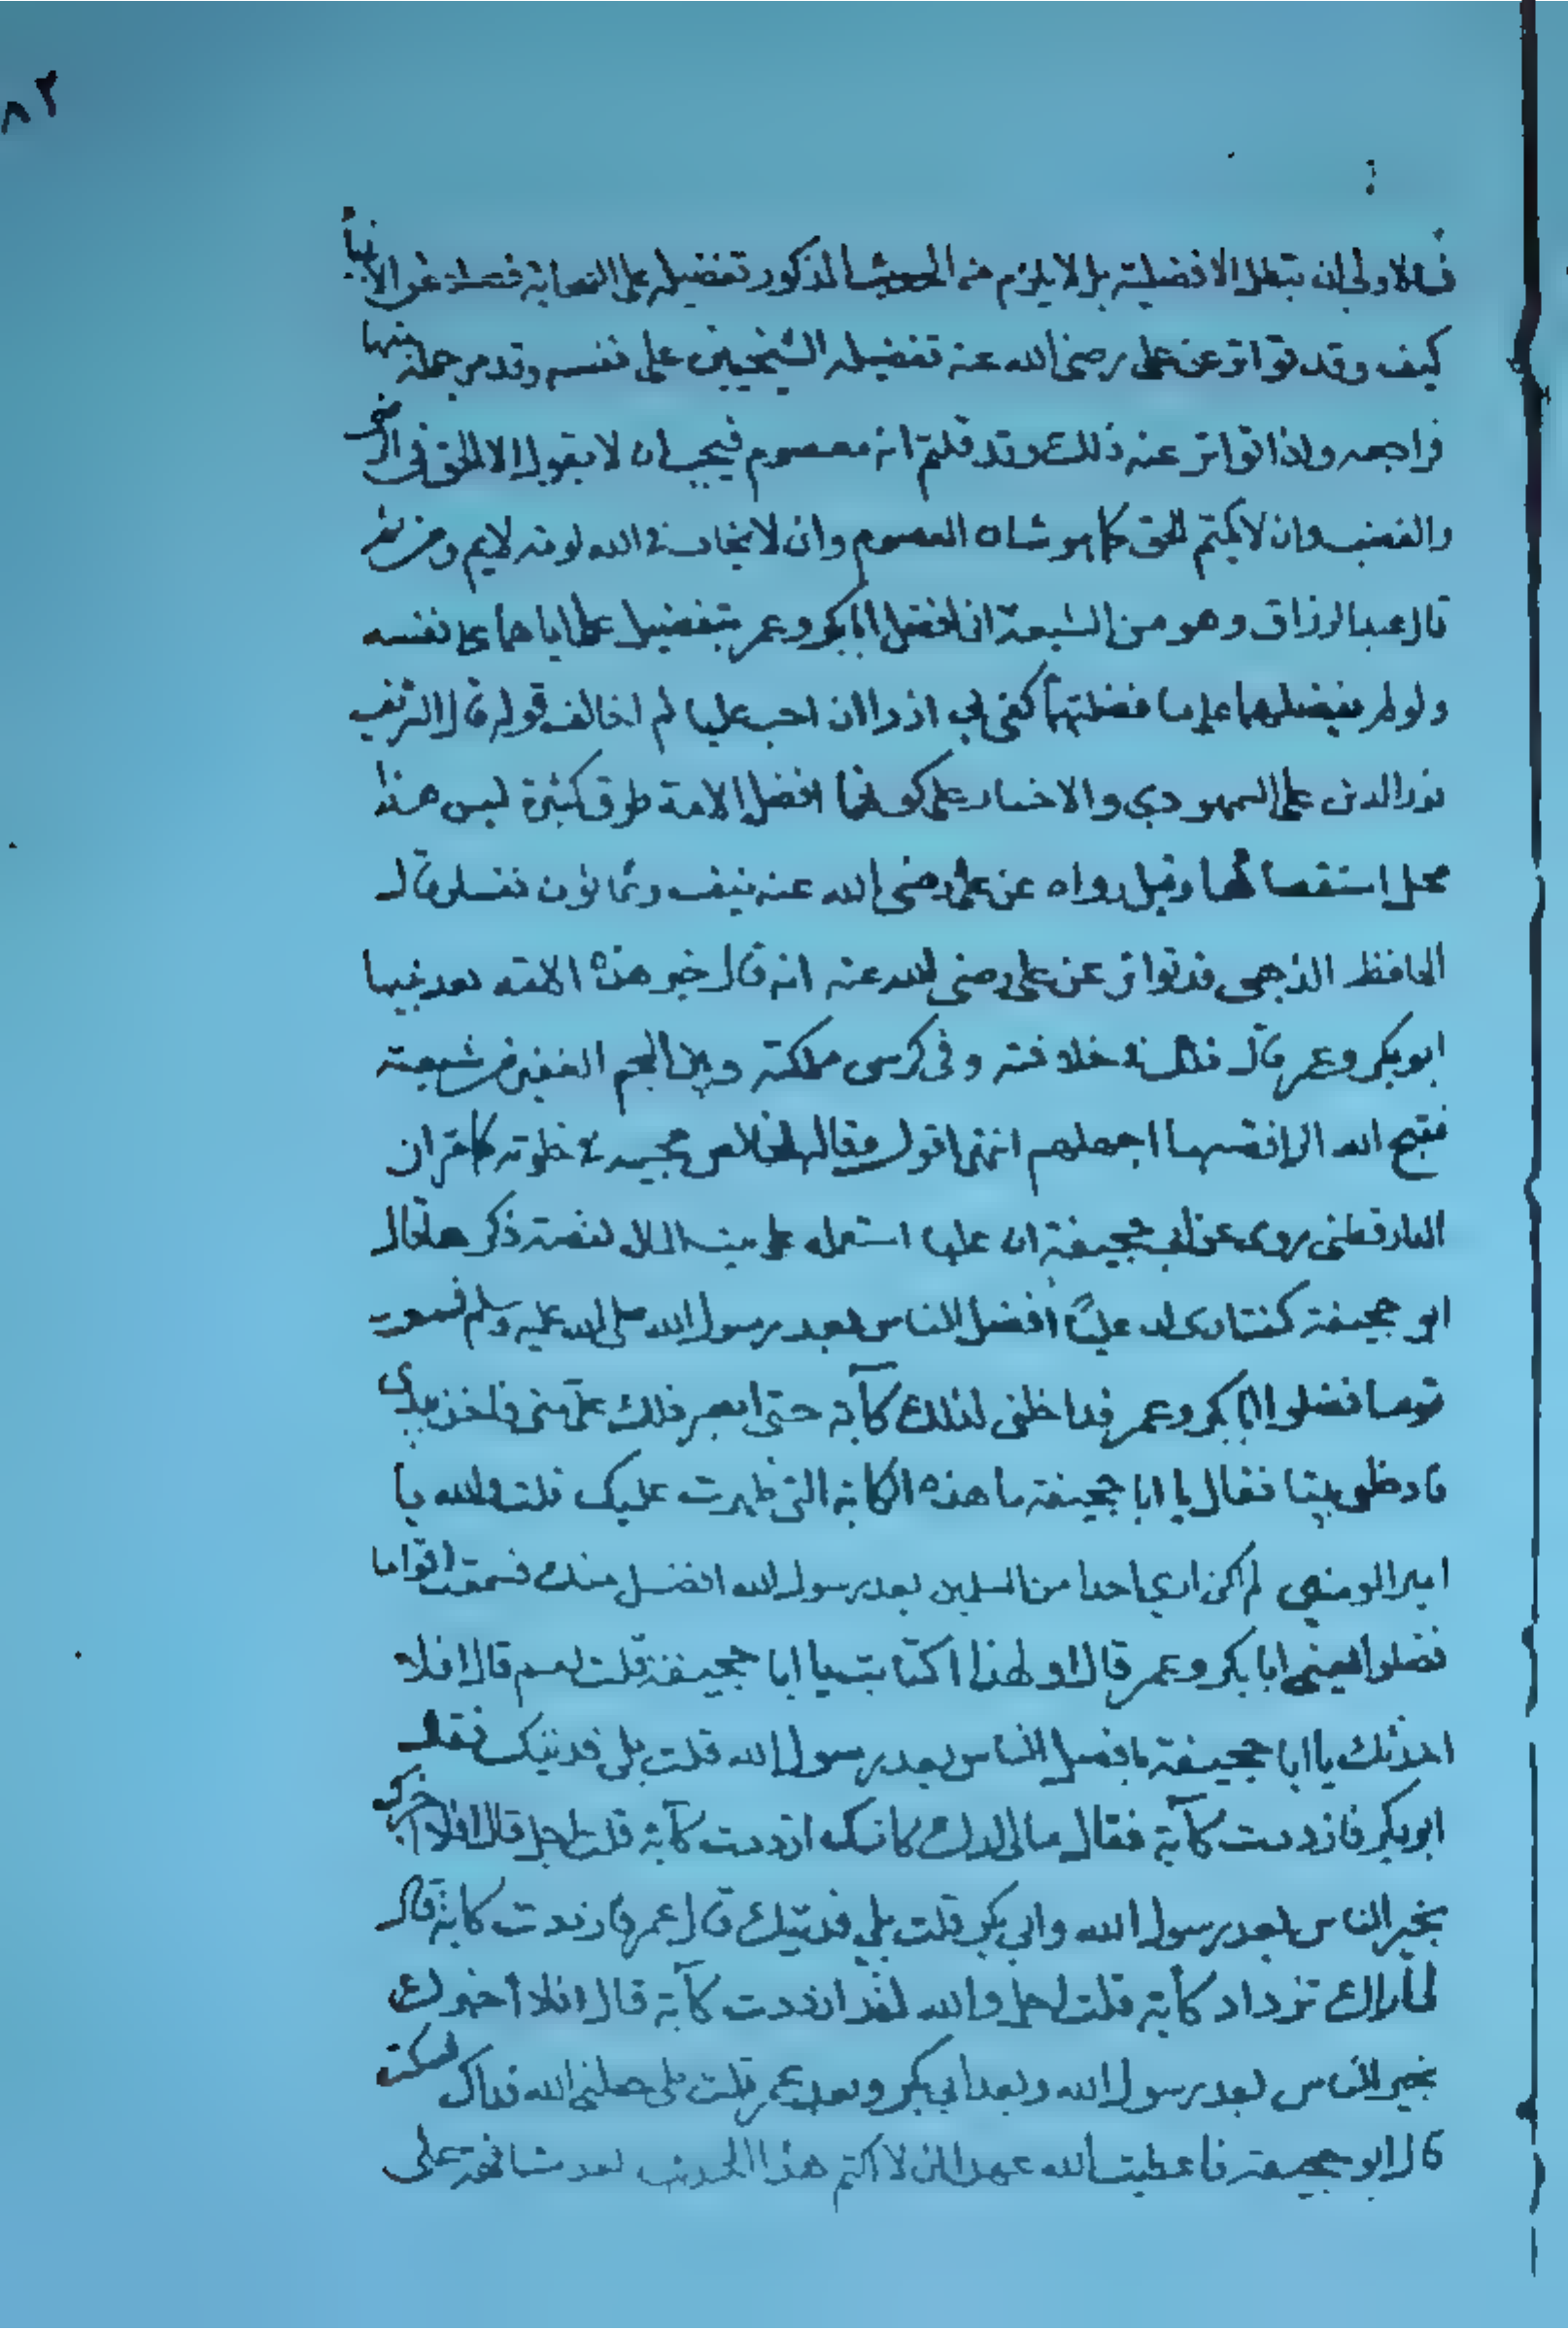 ٨٢
فالاولى ان تبطل الافضلية بل لا يلزم من الحديث المذكور تفضيله على الصحابة فضلا عن الانبيا
كيف وقد تواتر عن على رضى الله عنه تفضيله الشيخين على نفسه وقد مر جملة منها
فراجعه واذا تواتر عنه ذلك وقد قلتم انه معصوم فيجب ان لا يقول الا الحق فى
والغضب وان لا يكتم الحق كما هو شان المعصوم وان لا يخاف فى الله لومة لايم ومن ثم
قال عبد الرزاق وهو من الشيعة انا افضل ابا بكر وعمر بتفضيل على اياهما على نفسه
ولو لم يفضلهما على ما فضلتهما كفى بى ازرا ان احب عليا ثم اخالف قوله قال الشريف
نور الدين على السمهودي والاخبار على كونهما افضل الامة طرق كثيرة ليس هذا
محل استقصائها وقيل رواه عن على رضى الله عنه نيف وثمانون نفسا وقال
الحافظ الذهبى قد تواتر عن على رضى الله عنه انه قال خير هذه الامة بعد نبيها
ابو بكر وعمر قال فى خلافته وفى كرسى مملكته وبين الجم الغفير من شيعته
فقبح الله الرافضة ما اجهلهم انتهى اقول وقالها لخلاص محبيه فى خلوته كما مر ان
الدارقطنى روى عن ابى جحيفة ان عليا استعمله على بيت المال لقصة ذكرها قال
ابو جحيفة كنت ارى ان عليًّا افضل الناس بعد رسول الله صلى الله عليه وسلم فسمعت
قوما فضلوا ابا بكر وعمر فداخلنى لذلك كآبة حتى ابصر ذلك على منى فاخذ بيدى
فادخلنى بيتا فقال يا ابا جحيفة ما هذه الكابة التى ظهرت عليك قلت والله يا
امير المومنين لم اكن ارى احدا من المسلمين بعد رسول الله افضل منك فسمعت اقواما
فضلوا يعنى ابا بكر وعمر قال او لهذا اكتابت يا ابا جحيفة قلت نعم قال افلا
احدثك يا ابا جحيفة بافضل الناس بعد رسول الله قلت بلى فديتك فقال
ابو بكر فازددت كآبة فقال مالى اراك كانك ازددت كآبة قلت اجل قال افلا اخبرك
بخير الناس بعد رسول الله وابى بكر قلت بلى فديتك قال عمر فازددت كابة قال
اراك تزداد كأبة قلت اجل والله لقد ازددت كآبة قال افلا أخبرك
بخير الناس بعد رسول الله وبعد ابي بكر وبعد عمر قلت بلى جعلنى الله فداك فسكت
قال ابو جحيفة فاعطيت الله عهدا ان لا اكتم هذا الحديث بعد مشافهة على